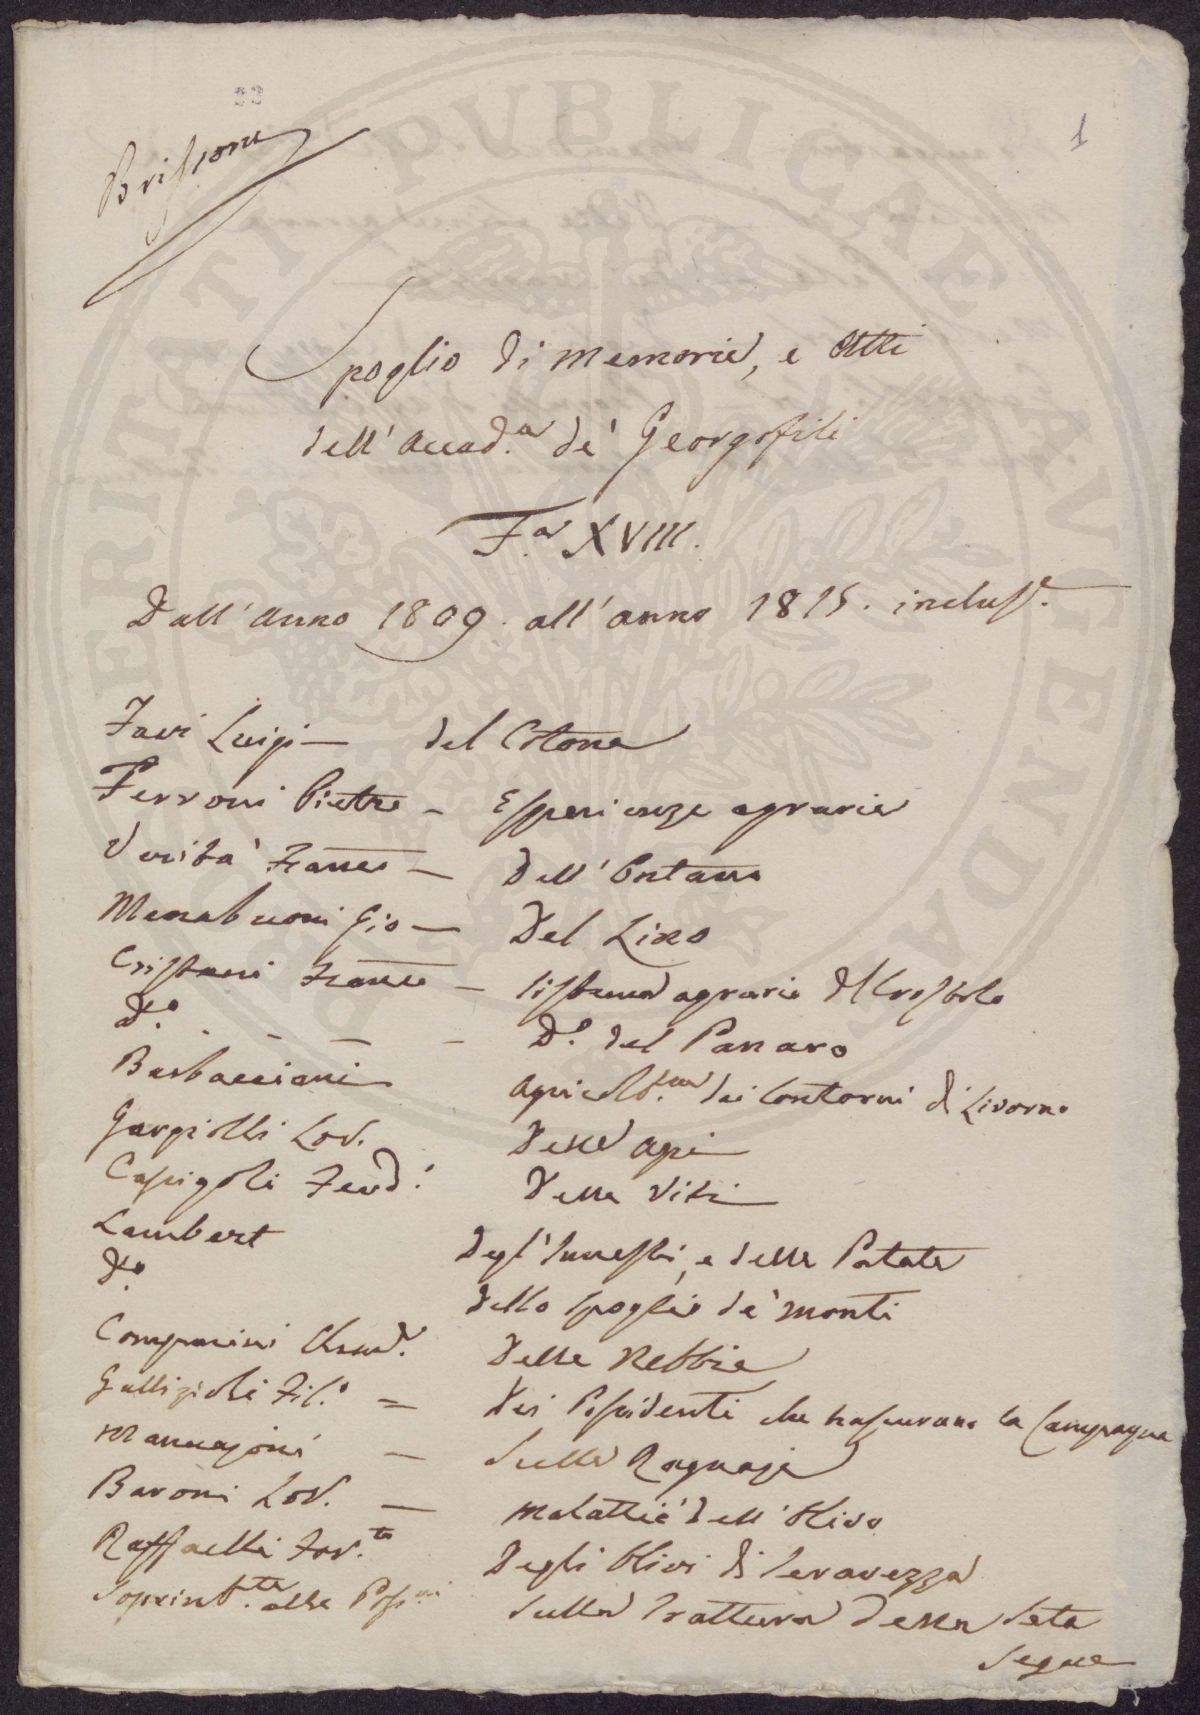 33
1
Spoglio di memorie, e Atti
dell'Accad.a de' Georgofili
F.a XVIII.
Dall'Anno 1809. all'anno 1815. inclus.e
Favi Luigi — del Cotone
Ferroni Pietro — Esperienze agrarie
Verità Franc.o — Dell'Ontano
Menabuoni Gio — Del Lino
Cristani Franc.o — Sistema agrario del Crostolo
d.o - - - D.o del Panaro
Barbacciani Agricolt.ura dei Contorni di Livorno
Gargiolli Lod. Delle api
Capigoli Ferd. Delle Viti
Lambert Degl'Innesti, e delle Patate
d.o dello spoglio de' monti
Comparini Delle Nebbie
Gallizioli Fil.o = Dei Possidenti che trascurano la Campagna
Mannajoni — Sulle Ragnaje
Baroni Lod. — Malattie dell'Olivo
Raffaelli Degli Olivi di Seravezza
Soprint.te alle Poss.ni Sulla Trattura della Seta
Segue
PERITATI PUBLICAE AUGENDAE